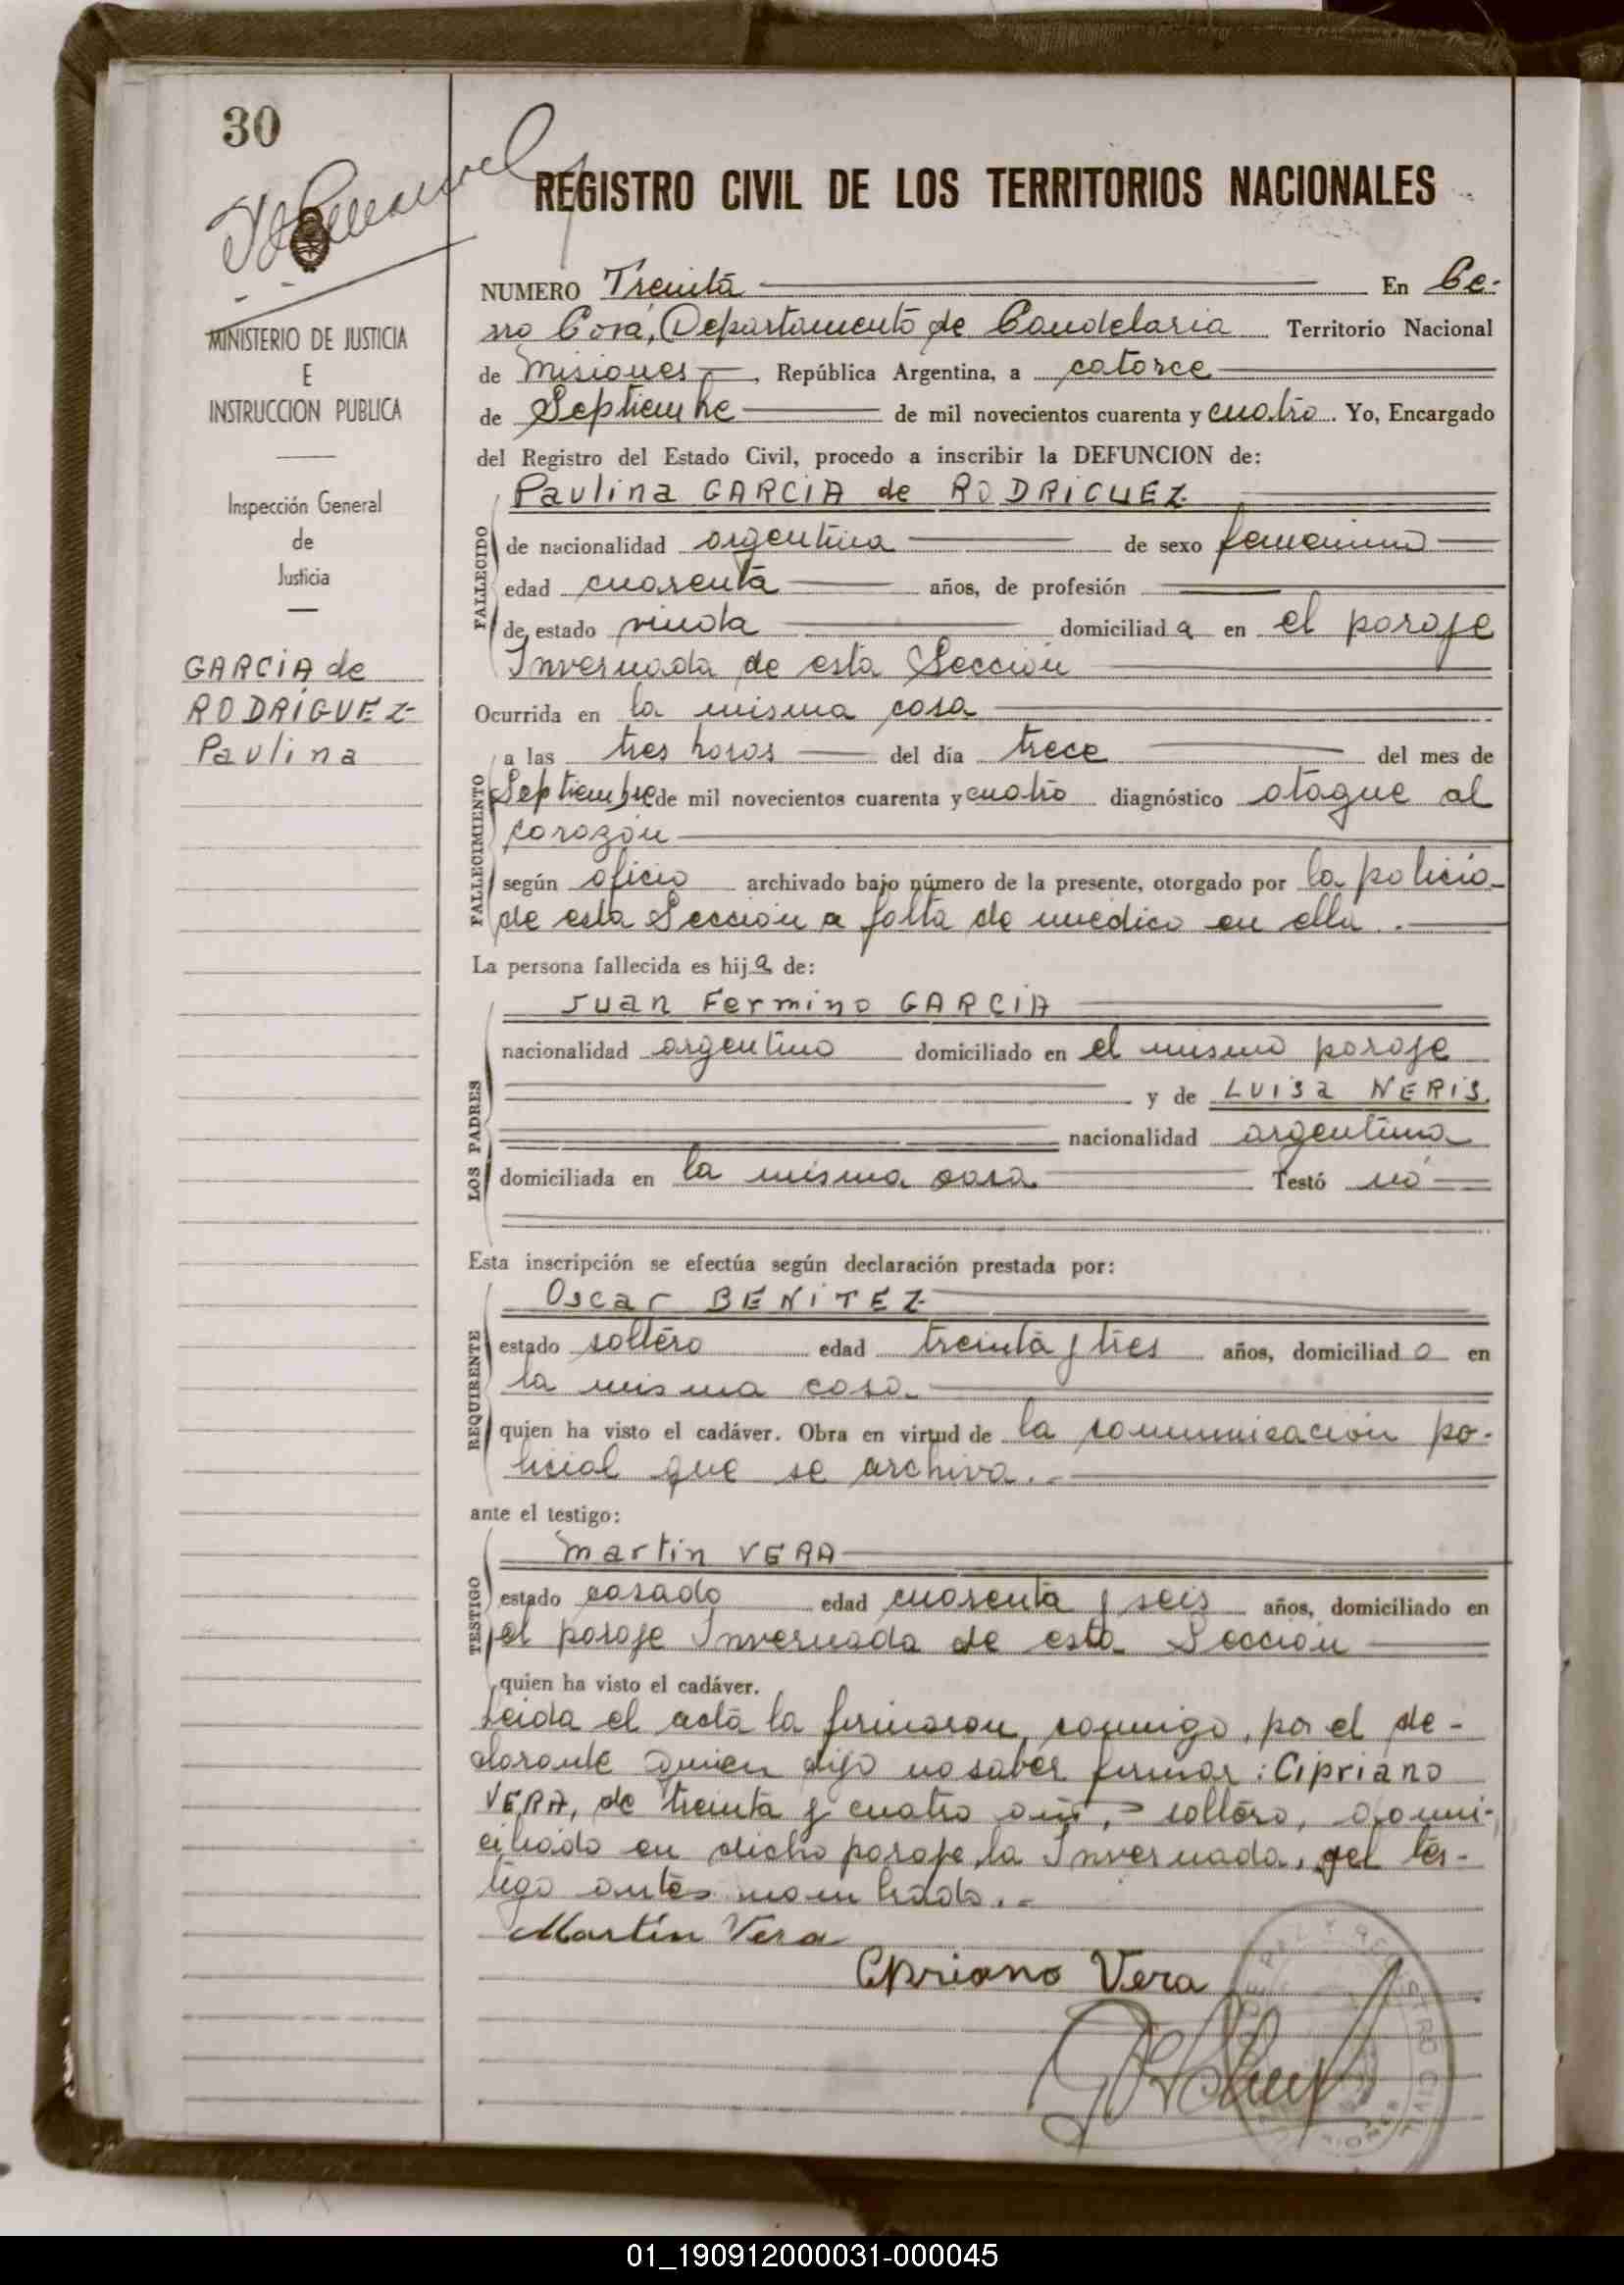 30
REGISTRO CIVIL DE LOS TERRITORIOS NACIONALES
MINISTERIO DE JUSTICIA
E
INSTRUCCION PUBLICA
Inspección General
de
Justicia
GARCIA de
RODRÍGUEZ
Paulina
NUMERO Treinta En Ce-
rro Corá, Departamento de Candelaria Territorio Nacional
de Misiones, República Argentina, a catorce
de Septiembre de mil novecientos cuarenta y cuatro. Yo, Encargado
del Registro del Estado Civil, procedo a inscribir la DEFUNCION de:
FALLECIDO
Paulina GARCIA de RODRIGUEZ
de nacionalidad argentina de sexo femenino
edad cuarenta años, de profesión
de estado viuda domiciliada en el paraje
Invernada de esta Sección
Ocurrida en la misma casa
FALLECIMIENTO
a las tres horas del día trece del mes de
Septiembre de mil novecientos cuarenta y cuatro diagnóstico ataque al
corazón
según oficio archivado bajo número de la presente, otorgado por la policia
de esta Sección a falta de médico en ella.
La persona fallecida es hija de:
LOS PADRES
Juan Fermino GARCIA
nacionalidad argentino domiciliado en el mismo paraje
y de Luisa NERIS.
nacionalidad argentina
domiciliada en la misma casa Testó no
Esta inscripción se efectúa según declaración prestada por:
REQUIRENTE
Oscar BENITEZ
estado soltero edad treinta y tres años, domiciliado en
la misma casa
quien ha visto el cadáver. Obra en virtud de la comunicación po-
licial que se archiva.-
ante el testigo:
TESTIGO
Martin VERA
estado casado edad cuarenta y seis años, domiciliado en
el paraje Invernada de esta Sección
quien ha visto el cadáver.
Leida el acta la firmaron conmigo, por el de-
clarante quien dijo no saber firmar: Cipriano
VERA, de treinta y cuatro años, soltero, domi-
ciliado en dicho paraje la Invernada, y el tes-
tigo antes nombrado.-
Martín Vera
Cipriano Vera
REGISTRO CIVIL
01_190912000031-000045